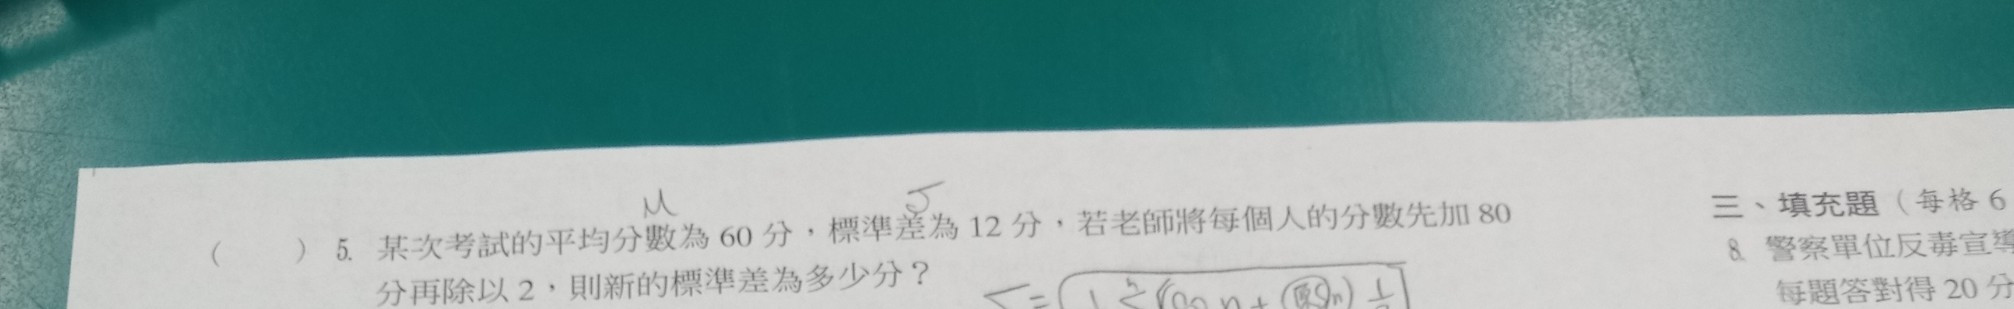 M
σ
( ) 5. 某次考試的平均分數為 60 分，標準差為 12 分，若老師將每個人的分數先加 80
分再除以 2，則新的標準差為多少分？
三、填充題（每格 6
8. 警察單位反毒宣導
每題答對得 20 分